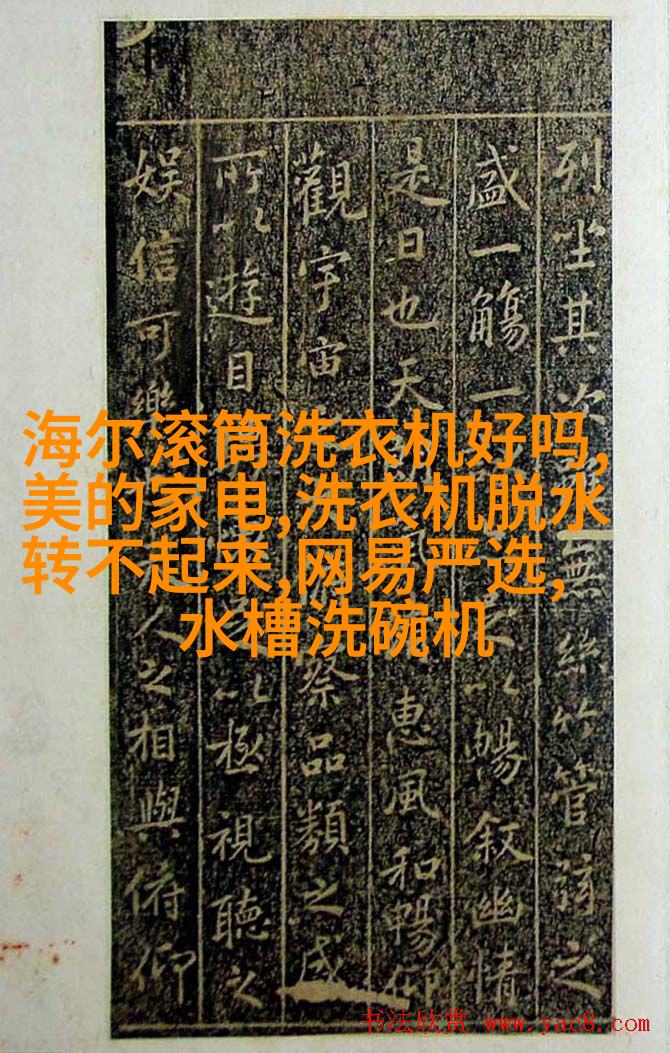 列坐其次無絲竹管弦之
盛一觴一之以暢叙幽情
是日也天惠風和暢仰
觀宇宙察品類之盛
所以遊目以極視聽之
娛信可樂人之相與俯仰
海尔滚筒洗衣机好吗,
美的家电,洗衣机脱水
转不起来,网易严选,
水槽洗碗机
书法欣赏 www.yac8.com